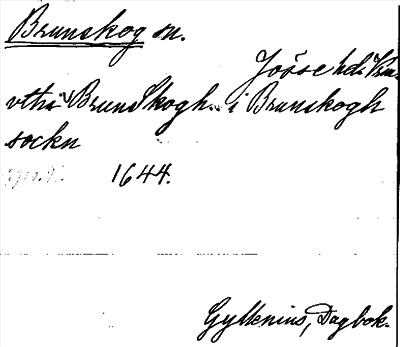 Brunskog sn.
Jösse hd
Brunskogh i Brunskogh
sockn
1644.
Gyllenius, Dagbok.